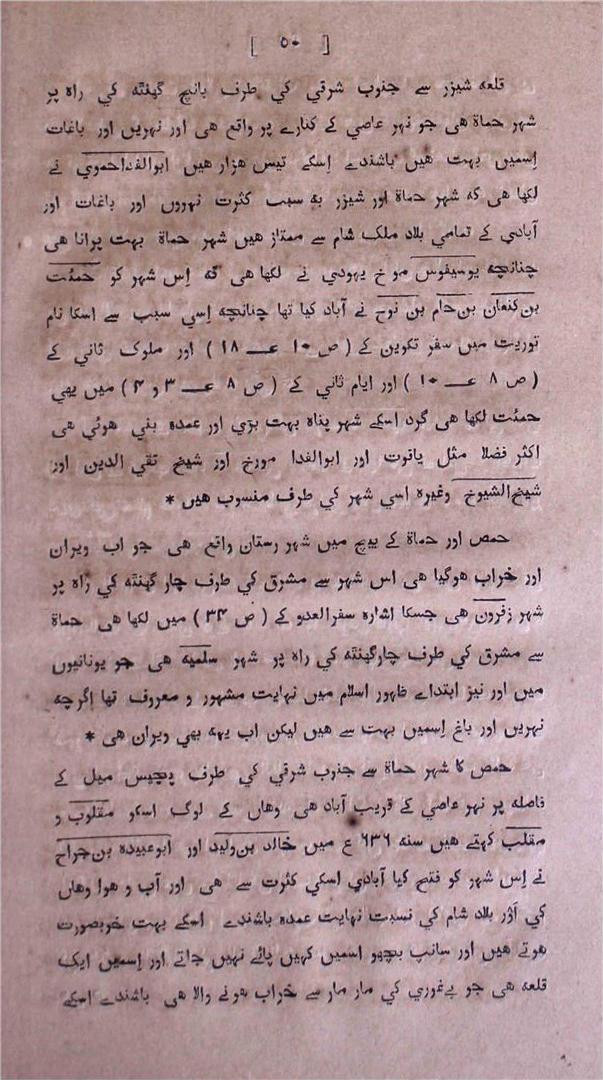 [ ٥٠ ]
قلعه شيزر سے جنوب شرقي کي طرف پانچ گهنٹه کي راه پر
شهر حماة هی جو نهر عاصي کے کنارے پر واقع هی اور نهريں اور باغات
اِسميں بهت هيں باشندے اِسکے تيس هزار هيں ابوالفداحموي نے
لکها هی که شهر حماة اور شيزر به سبب کثرت نهروں اور باغات اور
آبادي کے تمامي بلاد ملک شام سے ممتاز هيں شهر حماة بهت پرانا هی
چنانچه يوسيفوس مورخ يهودي نے لکها هی که اِس شهر کو حمئت
بن کنعان بن حام بن نوح نے آباد کيا تها چنانچه اِسي سبب سے اسکا نام
توريت ميں سفر تکوين کے ( ص ١٠ عـــ ١٨ ) اور ملوک ثاني کے
( ص ٨ عـــ ١٠ ) اور ايام ثاني کے ( ص ٨ عـــ ٣ و ٤ ) ميں بهي
حمئت لکها هی گرد اسکے شهر پناه بهت بڑي اور عمده بني هوئي هی
اکثر فضلا مثل ياقوت اور ابوالفدا مورخ اور شيخ تقي الدين اور
شيخ الشيوخ وغيره اسي شهر کي طرف منسوب هيں *
حمص اور حماة کے بيچ ميں شهر رستان واقع هی جو اب ويران
اور خراب هوگيا هی اس شهر سے مشرق کي طرف چار گهنٹه کي راه پر
شهر زفرون هی جسکا اشاره سفرالعدو کے ( ص ٣٤ ) ميں لکها هی حماة
سے مشرق کي طرف چارگهنٹه کي راه پر شهر سلميه هی جو يونانيوں
ميں اور نيز ابتداے ظهور اسلام ميں نهايت مشهور و معروف تها اگرچه
نهريں اور باغ اِسميں بهت سے هيں ليکن اب يهه بهي ويران هی *
حمص کا شهر حماة سے جنوب شرقي کي طرف پچيس ميل کے
فاصله پر نهر عاصي کے قريب آباد هی وهاں کے لوگ اسکو مقلوب و
مقلب کهتے هيں سنه ٦٣٦ ع ميں خالد بن وليد اور ابوعبيده بن جراح
نے اِس شهر کو فتح کيا آبادي اسکي کثرت سے هی اور آب و هوا وهاں
کي اَوْر بلاد شام کي نسبت نهايت عمده باشندے اسکے بهت خوبصورت
هوتے هيں اور سانپ بچهو اسميں کهيں پائے نهيں جاتے اور اِسميں ايک
قلعه هی جو بےغوري کي مار مار سے خراب هونے والا هی باشندے اسکے